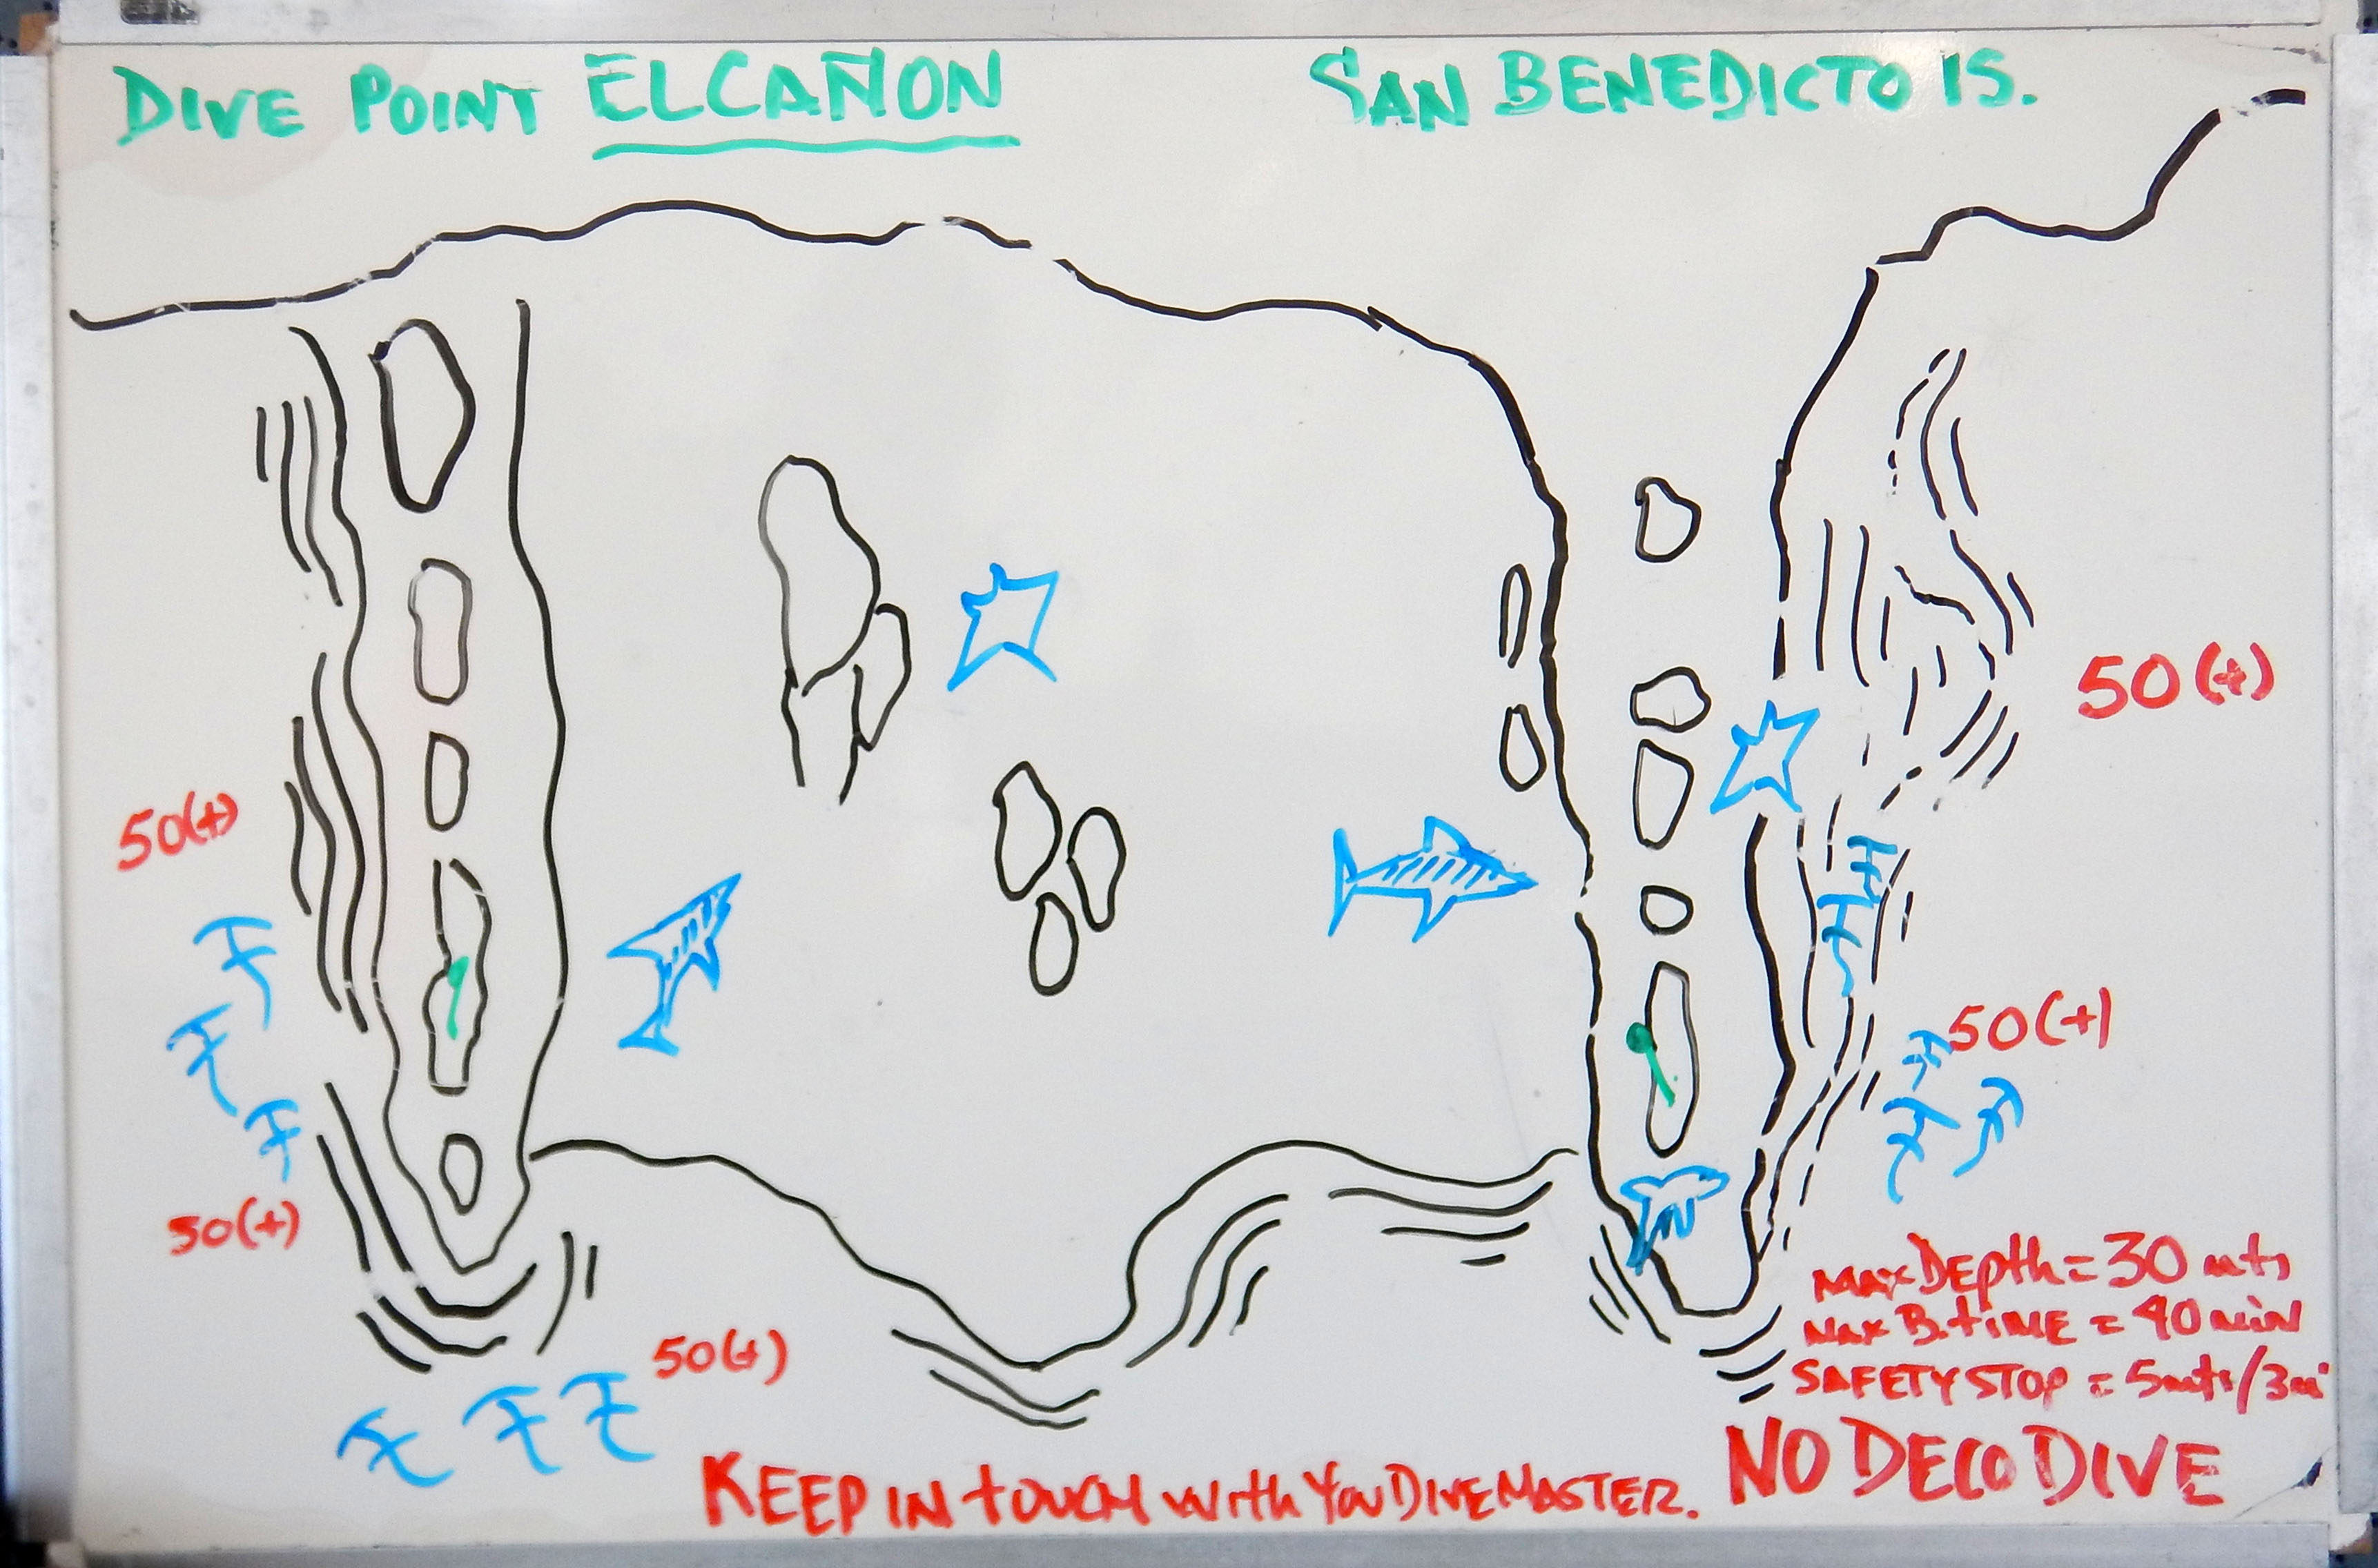 DIVE POINT EL CAÑON
SAN BENEDICTO IS.
50 (+)
50(+)
50(+)
50(+)
50(+)
MAX DEPth = 30 mts
MAX B. tIME = 40 min
SAFETY STOP = 5mts/3mi
NO DECO DIVE
KEEP IN toUCH With YOU DIVE MASTER.